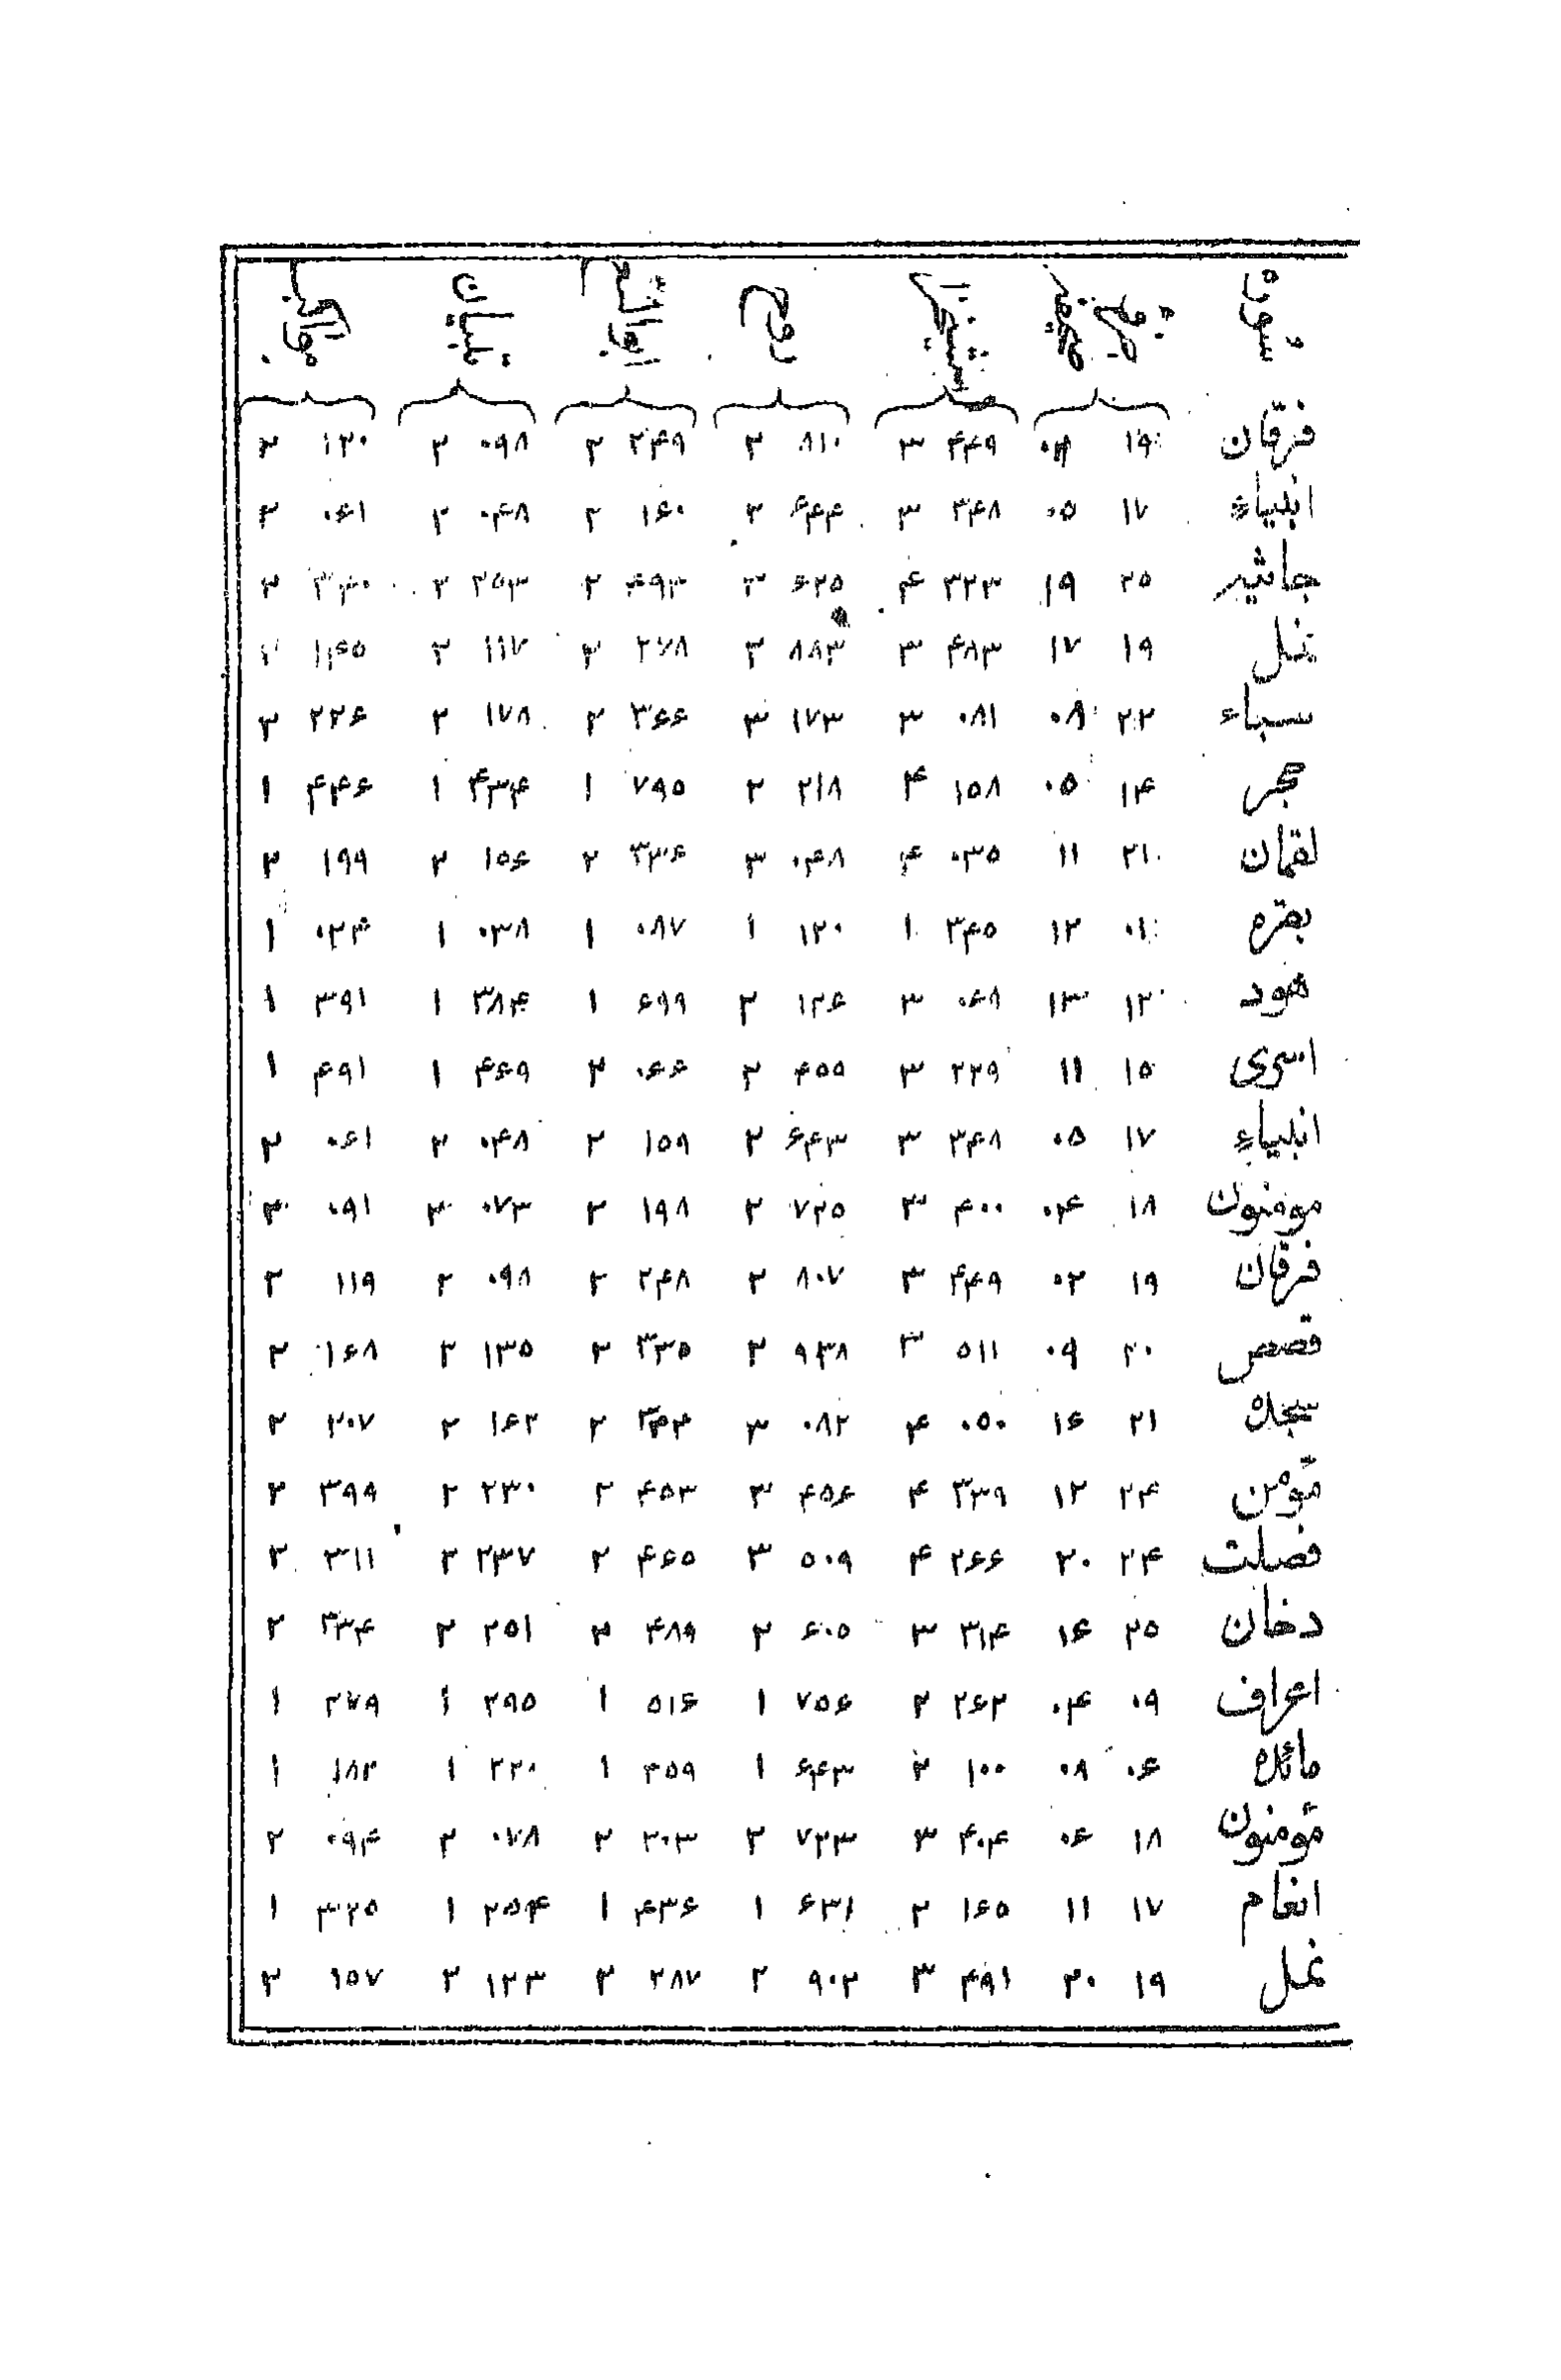 فرقان ۱۹ ۳ ۴۴۹ ۲ ۸۱۰ ۲ ۲۴۹ ۲ ۰۹۸ ۲ ۱۲۰
انبیاء ۱۷ ۰۵ ۳ ۳۴۸ ۲ ۶۴۴ ۲ ۱۶۰ ۲ ۰۴۸ ۲ ۰۶۱
جاثیه ۲۵ ۱۹ ۴ ۳۲۳ ۳ ۶۲۵ ۲ ۴۹۳ ۲ ۲۵۳ ۲
نمل ۱۹ ۱۷ ۳ ۴۸۳ ۲ ۸۸۳ ۲ ۲۷۸ ۲ ۱۱۷ ۱۴۵
سباء ۲۲ ۰۸ ۳ ۰۸۱ ۳ ۱۷۳ ۲ ۳۶۶ ۲ ۱۷۸ ۲ ۲۲۶
حجر ۱۴ ۰۵ ۴ ۱۵۸ ۲ ۲۱۸ ۱ ۷۹۵ ۱ ۴۳۴ ۱ ۴۴۶
لقمان ۲۱ ۱۱ ۴ ۰۳۵ ۳ ۰۴۸ ۲ ۳۳۶ ۲ ۱۵۶ ۲ ۱۹۹
بقره ۰۱ ۱۲ ۱ ۳۴۵ ۱ ۱۲۰ ۱ ۰۸۷ ۱ ۰۳۸ ۱ ۰۲۴
هود ۱۲ ۱۳ ۳ ۰۶۸ ۲ ۱۲۶ ۱ ۶۹۹ ۱ ۳۸۴ ۱ ۳۹۱
اسری ۱۵ ۱۱ ۳ ۲۲۹ ۲ ۴۵۵ ۲ ۰۶۶ ۱ ۴۶۹ ۱ ۴۹۱
انبیاء ۱۷ ۰۵ ۳ ۳۴۸ ۲ ۶۴۳ ۲ ۱۵۹ ۲ ۰۴۸ ۲ ۰۶۱
مومنون ۱۸ ۰۴ ۳ ۴۰۰ ۲ ۷۲۵ ۲ ۱۹۸ ۲ ۰۷۳ ۲ ۰۹۱
فرقان ۱۹ ۰۲ ۳ ۴۴۹ ۲ ۸۰۷ ۲ ۲۴۸ ۲ ۰۹۸ ۲ ۱۱۹
قصص ۲۰ ۰۹ ۳ ۵۱۱ ۲ ۹۳۸ ۲ ۳۳۵ ۲ ۱۳۵ ۲ ۱۶۸
سجده ۲۱ ۱۶ ۴ ۰۵۰ ۳ ۰۸۲ ۲ ۲ ۱۶۲ ۲ ۲۰۷
مؤمن ۲۴ ۱۲ ۴ ۳۳۹ ۳ ۴۵۶ ۲ ۴۵۳ ۲ ۲۳۰ ۲ ۳۹۹
فصلت ۲۴ ۲۰ ۴ ۲۶۶ ۳ ۵۰۹ ۲ ۴۶۵ ۲ ۲۳۷ ۲ ۳۱۱
دخان ۲۵ ۱۶ ۳ ۳۱۴ ۲ ۶۰۵ ۲ ۴۸۹ ۲ ۲۵۱ ۲ ۳۳۴
اعراف ۰۹ ۰۴ ۲ ۲۶۲ ۱ ۷۵۶ ۱ ۵۱۶ ۱ ۲۹۵ ۱ ۲۷۹
مائده ۰۶ ۰۸ ۲ ۱۰۰ ۱ ۶۴۳ ۱ ۴۵۹ ۱ ۲۲۰ ۱ ۱۸۲
مؤمنون ۱۸ ۰۶ ۳ ۴۰۴ ۲ ۷۳۳ ۲ ۲۰۳ ۲ ۰۷۸ ۲ ۰۹۴
انعام ۱۷ ۱۱ ۲ ۱۶۵ ۱ ۶۳۱ ۱ ۴۳۶ ۱ ۲۵۴ ۱ ۳۲۵
نمل ۱۹ ۲۰ ۳ ۴۹۱ ۲ ۹۰۲ ۲ ۲۸۷ ۲ ۱۲۳ ۲ ۱۵۷